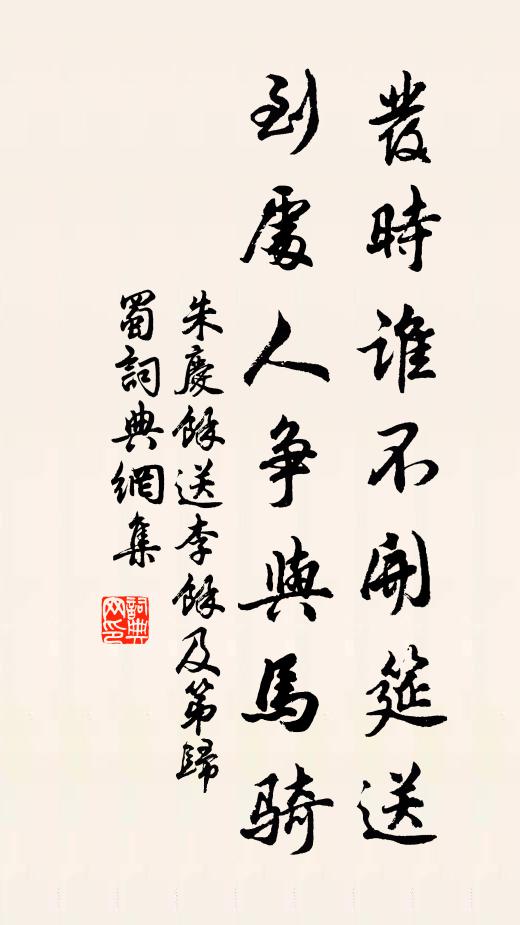 發時誰不開筵送
到處人爭與馬騎
朱慶餘送李餘及第歸
蜀詞典網集
詞典网印